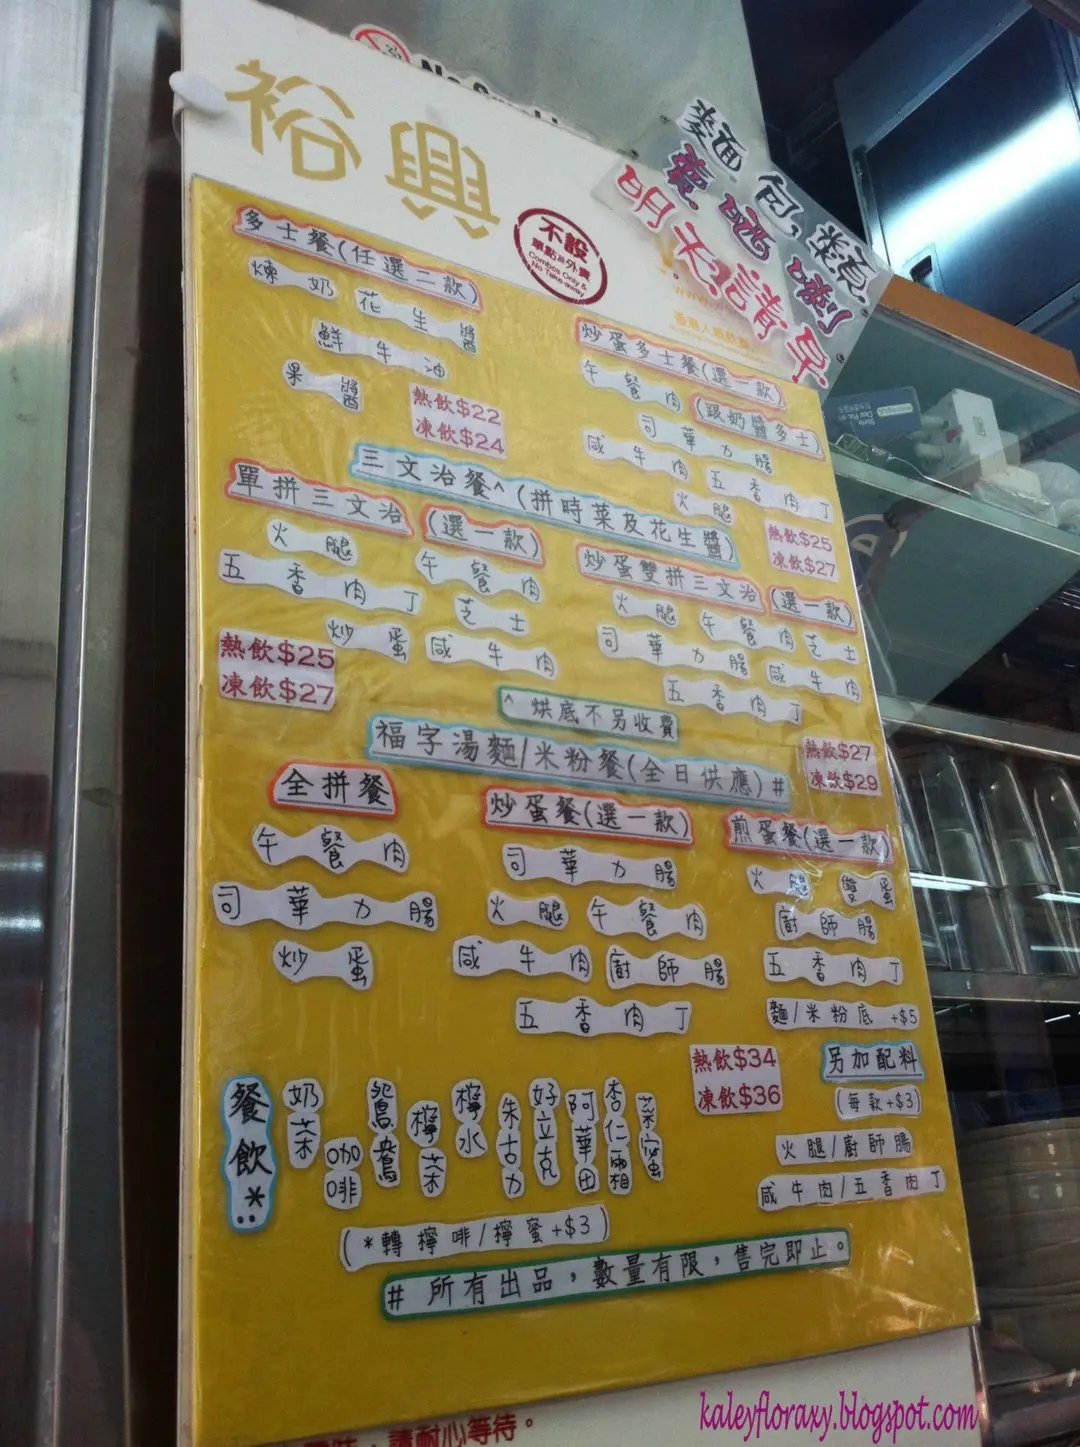 裕興
不設
單點及外賣
Combos Only &
No Take-away
麵包類
賣晒喇
明天請早
多士餐(任選二款)
煉奶 花生醬
鮮牛油
果醬
熱飲$22
凍飲$24
炒蛋多士餐(選一款)
(跟奶醬多士)
午餐肉
司華力腸
咸牛肉
五香肉丁
火腿
熱飲$25
凍飲$27
三文治餐^(拼時菜及花生醬)
單拼三文治 (選一款)
火腿 午餐肉
五香肉丁 芝士
炒蛋 咸牛肉
熱飲$25
凍飲$27
炒蛋雙拼三文治 (選一款)
火腿 午餐肉 芝士
司華力腸 咸牛肉
五香肉丁
熱飲$27
凍飲$29
^烘底不另收費
福字湯麵/米粉餐(全日供應)#
全拼餐
午餐肉
司華力腸
炒蛋
炒蛋餐(選一款)
司華力腸
火腿 午餐肉
咸牛肉 廚師腸
五香肉丁
煎蛋餐(選一款)
火腿 雙蛋
廚師腸
五香肉丁
麵/米粉底 +$5
熱飲$34
凍飲$36
另加配料
(每款+$3)
火腿/廚師腸
咸牛肉/五香肉丁
餐飲*:
奶茶
咖啡
鴛鴦
檸茶
檸水
朱古力
好立克
阿華田
杏仁霜
菜蜜
(*轉檸啡/檸蜜+$3)
# 所有出品，數量有限，售完即止。
，請耐心等待。
kaleyfloraxy.blogspot.com